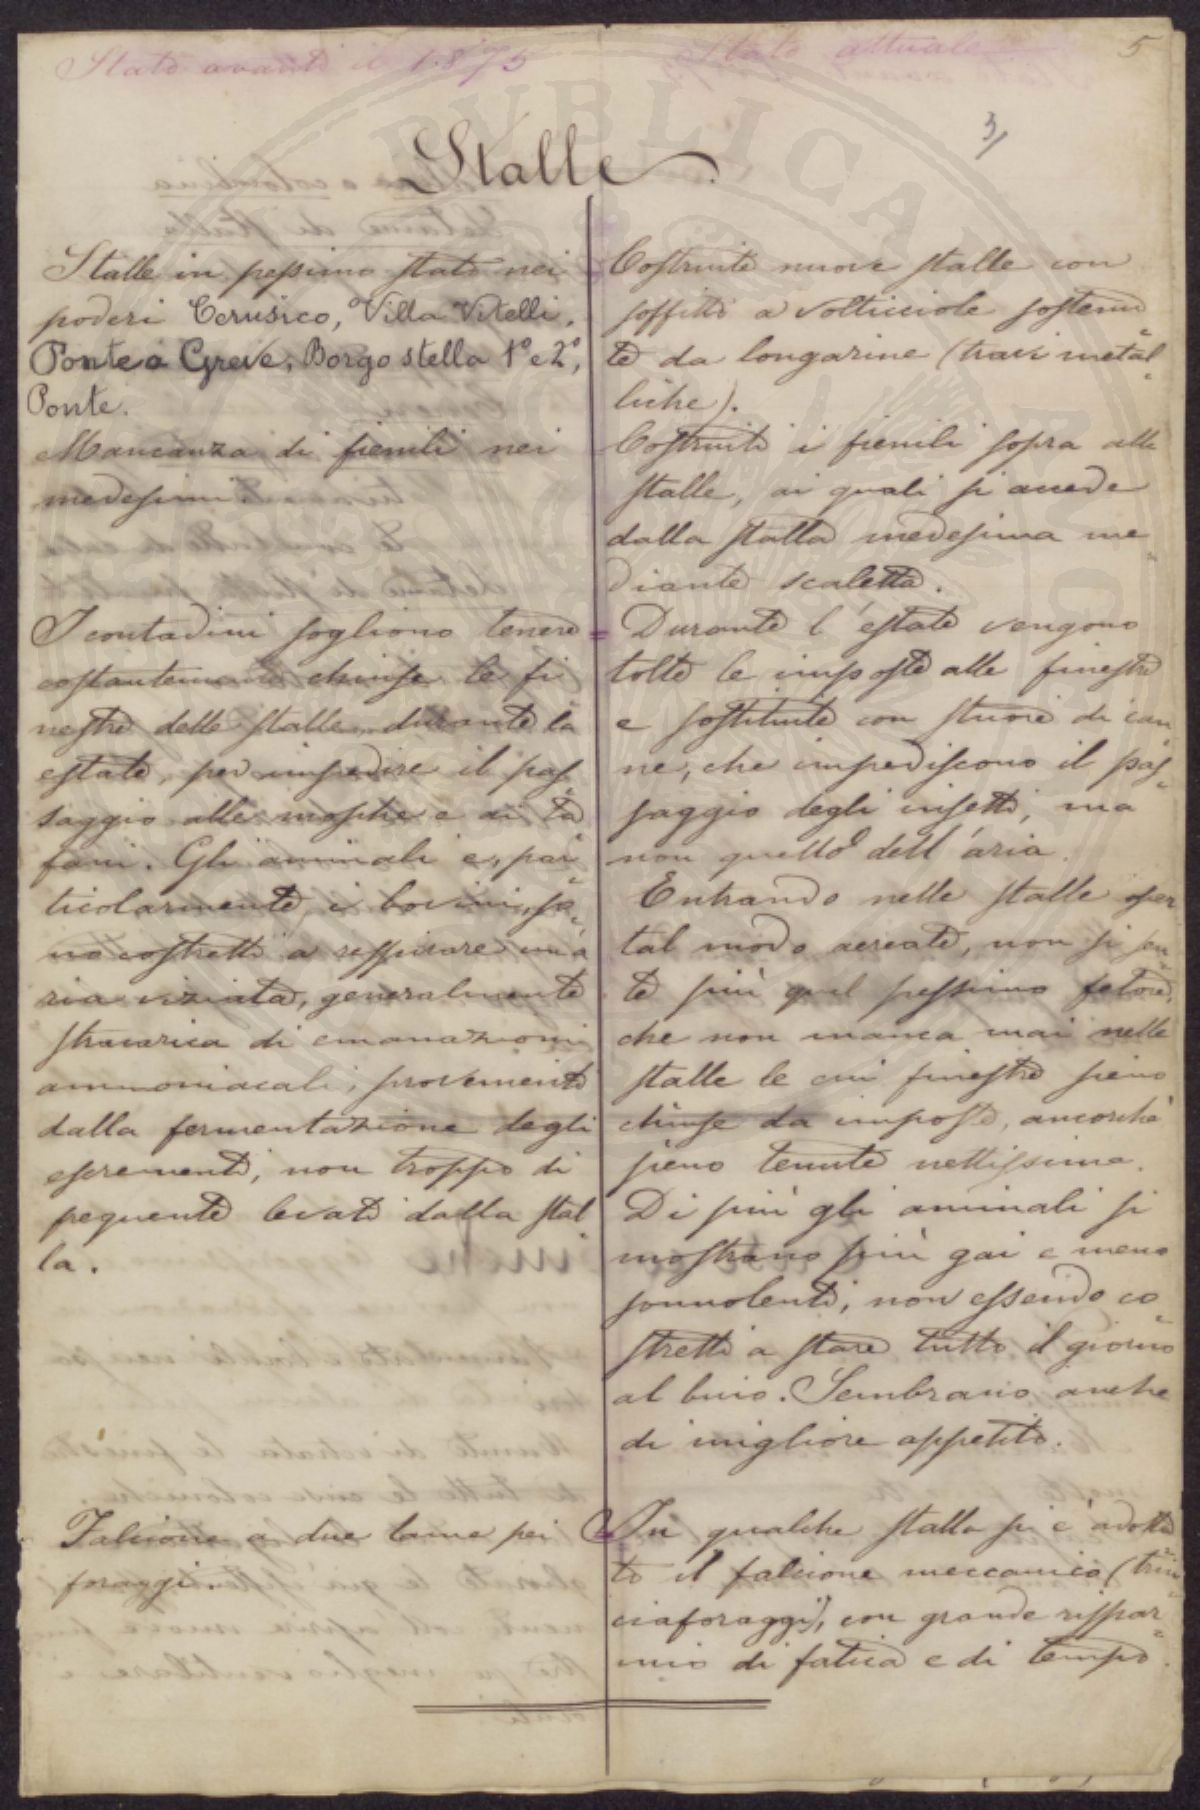 Stato avanti il 1875
Stato attuale
5
3/
Stalle.
Stalle in pessimo stato nei
poderi Cerusico, Villa Vitelli,
Ponte a Greve, Borgo stella 1º e 2º,
Ponte.
Mancanza di fienili nei
medesimi.
I contadini sogliono tenere
costantemente chiuse le fi
nestre delle stalle, durante la
estate, per impedire il pas=
saggio alle mosche e ai ta
fani. Gli animali e, par
ticolarmente, i bovini, so=
no costretti a respirare un'a
ria viziata, generalmente
stracarica di emanazioni
ammoniacali, provenienti
dalla fermentazione degli
escrementi, non troppo di
frequente levati dalla stal=
la.
Falcione a due lame pei
foraggi.
Costruite nuove stalle con
soffitto a volticciole sostenu
te da longarine (travi metal=
liche).
Costruiti i fienili sopra alle
stalle, ai quali si accede
dalla stalla medesima me=
diante scaletta.
Durante l'estate vengono
tolte le imposte alle finestre
e sostituite con stuoie di can
ne, che impediscono il pas=
saggio degli insetti, ma
non quello dell'aria.
Entrando nelle stalle per
tal modo aereate, non si sen=
te più quel pessimo fetore,
che non manca mai nelle
stalle le cui finestre sieno
chiuse da imposte, ancorchè
sieno tenute nettissime.
Di più gli animali si
mostrano più gai e meno
sonnolenti, non essendo co=
stretti a stare tutto il giorno
al buio. Sembrano anche
di migliore appetito.
In qualche stalla si è adotta
to il falcione meccanico (trin=
ciaforaggi), con grande rispar=
mio di fatica e di tempo.